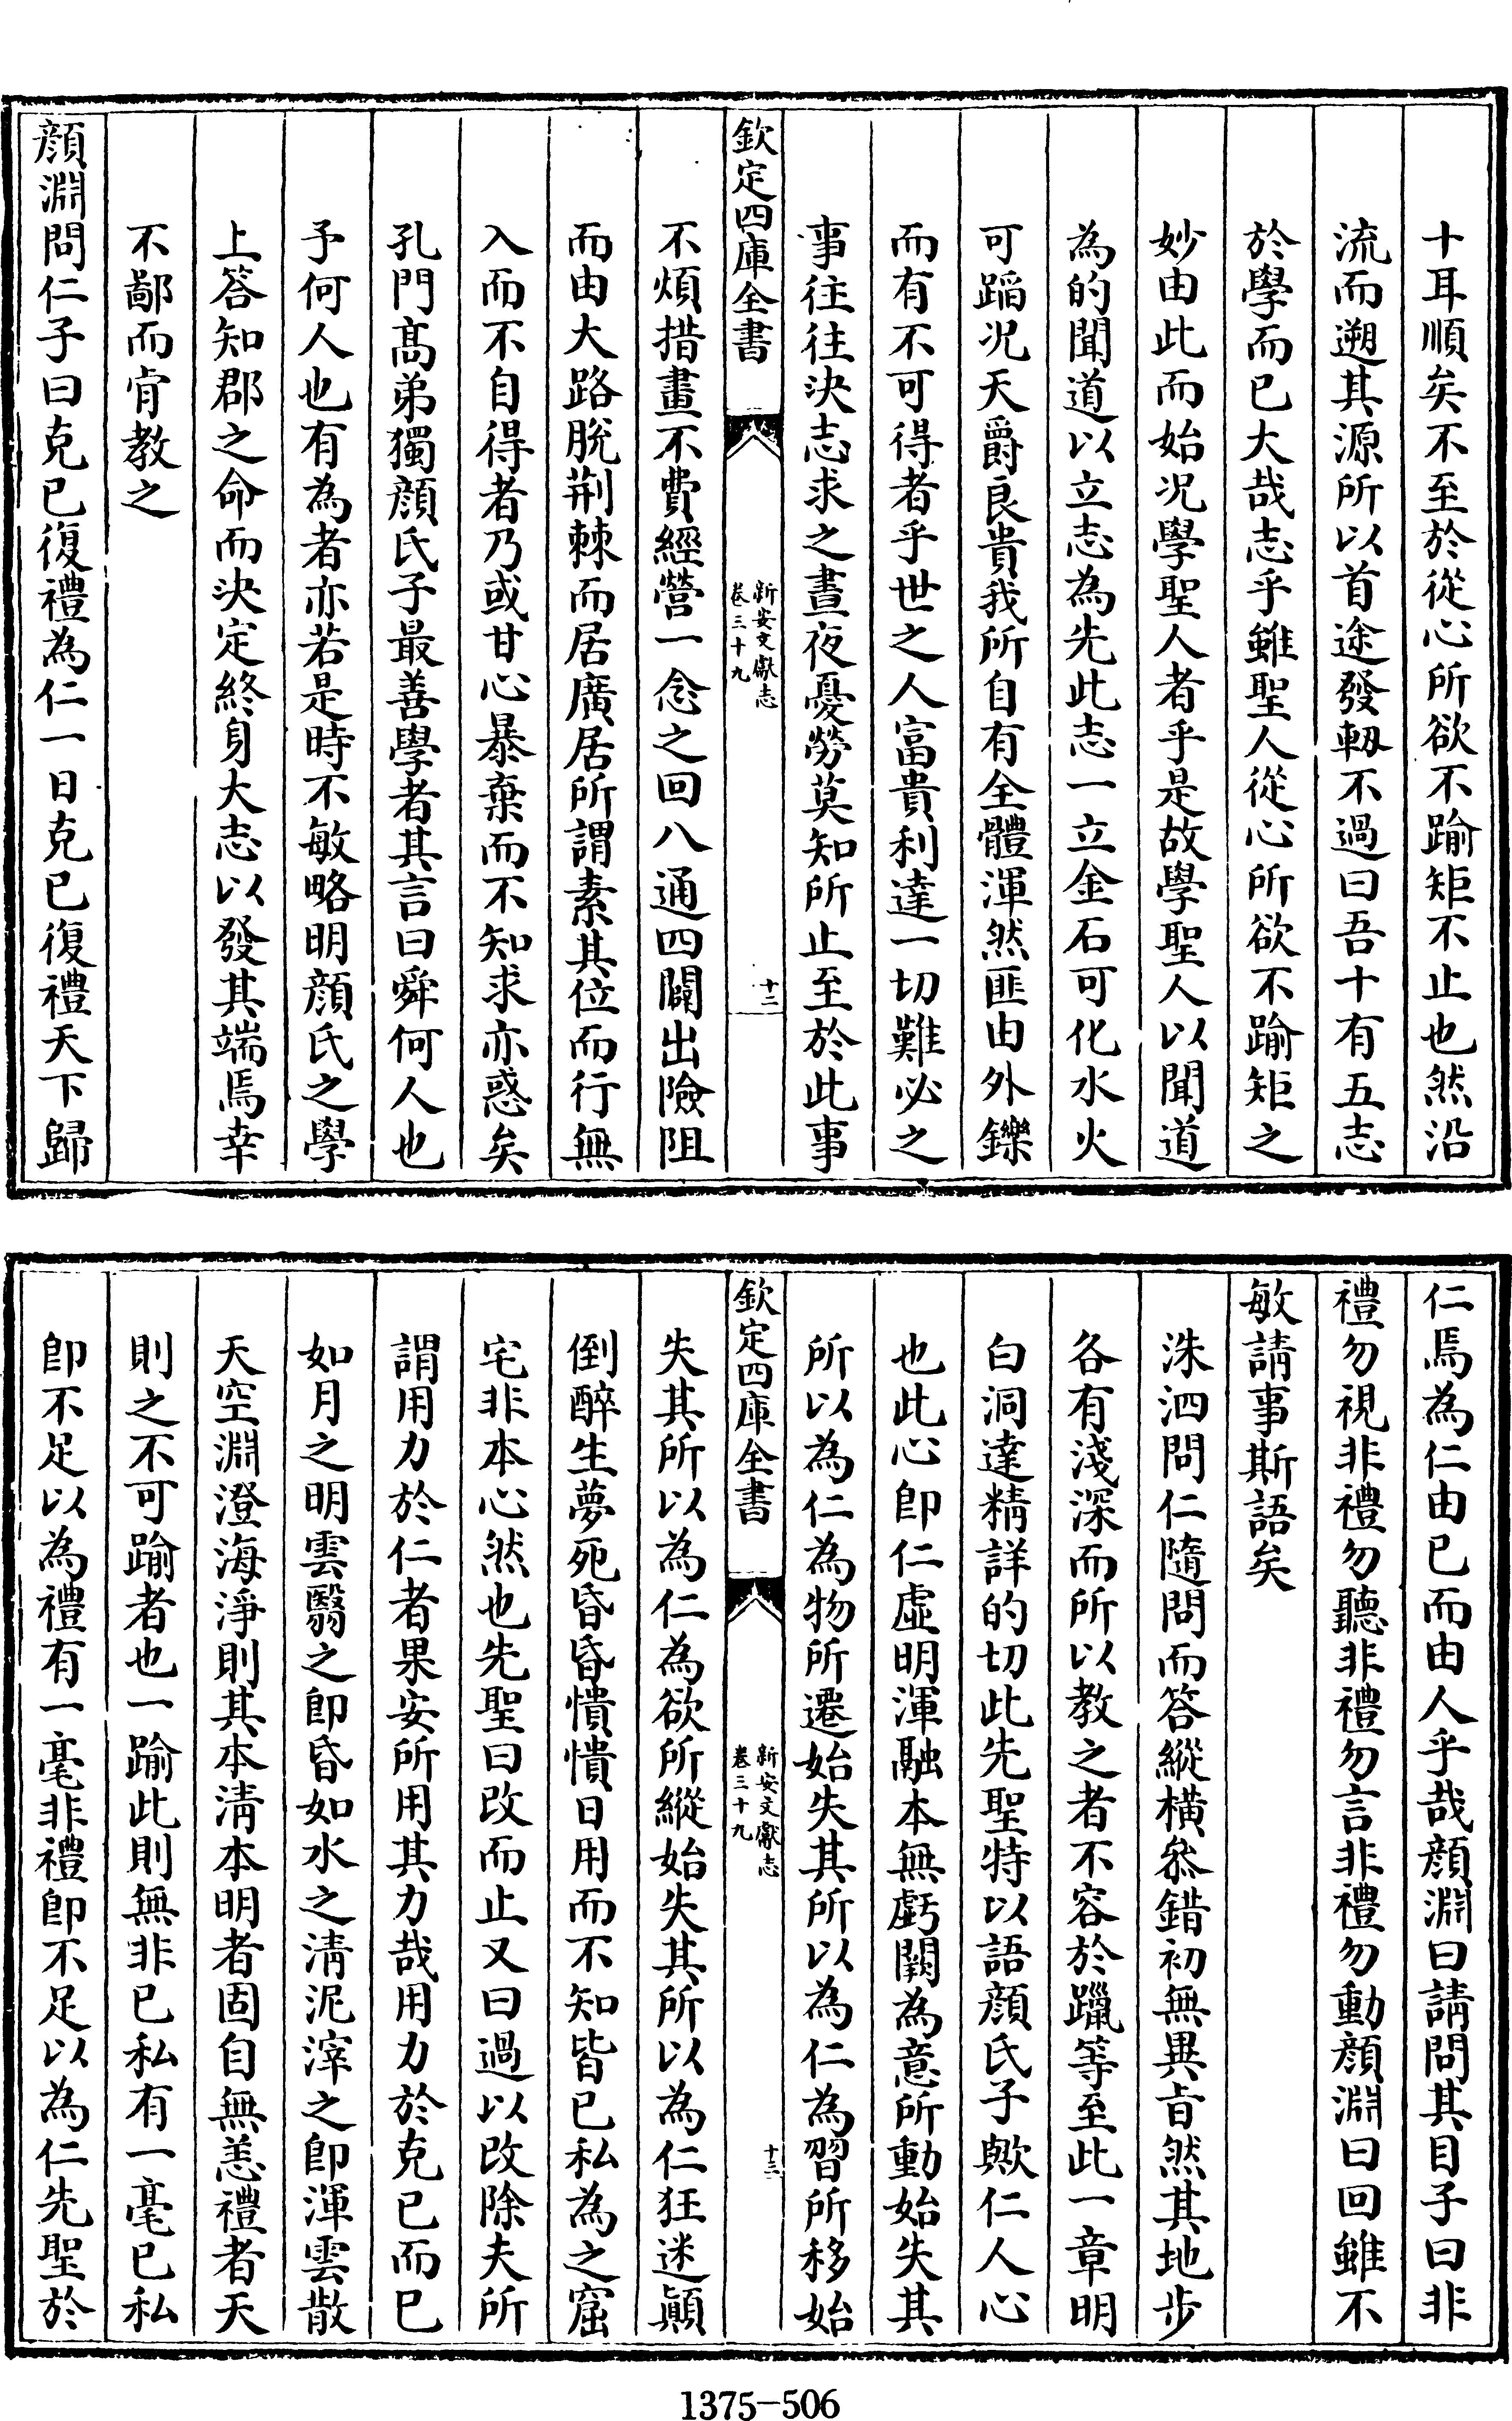 十耳順矣不至於從心所欲不踰矩不止也然沿
流而遡其源所以首途發軔不過曰吾十有五志
於學而已大哉志乎雖聖人從心所欲不踰矩之
妙由此而始况學聖人者乎是故學聖人以聞道
為的聞道以立志為先此志一立金石可化水火
可蹈况天爵良貴我所自有全體渾然匪由外鑠
而有不可得者乎世之人富貴利達一切難必之
事往往決志求之晝夜憂勞莫知所止至於此事
欽定四庫全書
新安文獻志
卷三十九
十二
不煩措畫不費經營一念之回八通四闢出險阻
而由大路脫荆棘而居廣居所謂素其位而行無
入而不自得者乃或甘心暴棄而不知求亦惑矣
孔門髙弟獨顔氏子最善學者其言曰舜何人也
予何人也有為者亦若是時不敏略明顔氏之學
上答知郡之命而決定終身大志以發其端焉幸
不鄙而肯教之
顔淵問仁子曰克已復禮為仁一日克已復禮天下歸
仁焉為仁由已而由人乎哉顔淵曰請問其目子曰非
禮勿視非禮勿聽非禮勿言非禮勿動顔淵曰回雖不
敏請事斯語矣
洙泗問仁隨問而答縱横叅錯初無異旨然其地步
各有淺深而所以教之者不容於躐等至此一章明
白洞達精詳的切此先聖特以語顔氏子歟仁人心
也此心卽仁虛明渾融本無虧闕為意所動始失其
所以為仁為物所遷始失其所以為仁為習所移始
欽定四庫全書
新安文獻志
卷三十九
十三
失其所以為仁為欲所縱始失其所以為仁狂迷顚
倒醉生夢死昏昏憒憒日用而不知皆已私為之窟
宅非本心然也先聖曰改而止又曰過以改除夫所
謂用力於仁者果安所用其力哉用力於克已而已
如月之明雲翳之卽昏如水之淸泥滓之卽渾雲散
天空淵澄海淨則其本淸本明者固自無恙禮者天
則之不可踰者也一踰此則無非已私有一毫已私
卽不足以為禮有一毫非禮卽不足以為仁先聖於
1375-506